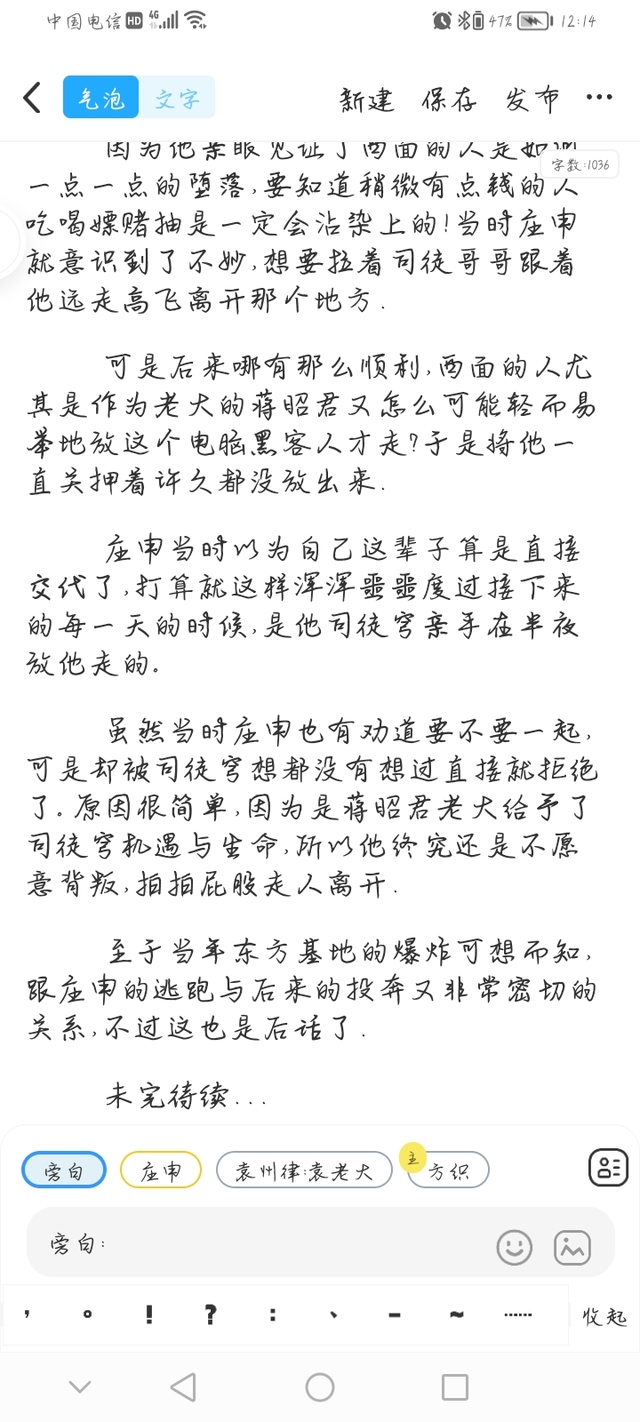 中国电信 HD 4G 47% 12:14
气泡 文字 新建 保存 发布
因为他亲眼见证了西面的人是如何
字数:1036
一点一点的堕落,要知道稍微有点钱的人
吃喝嫖赌抽是一定会沾染上的!当时庄申
就意识到了不妙,想要拉着司徒哥哥跟着
他远走高飞离开那个地方.
可是后来哪有那么顺利,西面的人尤
其是作为老大的蒋昭君又怎么可能轻而易
举地放这个电脑黑客人才走?于是将他一
直关押着许久都没放出来.
庄申当时以为自己这辈子算是直接
交代了,打算就这样浑浑噩噩度过接下来
的每一天的时候,是他司徒穹亲手在半夜
放他走的。
虽然当时庄申也有劝道要不要一起,
可是却被司徒穹想都没有想过直接就拒绝
了。原因很简单,因为是蒋昭君老大给予了
司徒穹机遇与生命,所以他终究还是不愿
意背叛,拍拍屁股走人离开.
至于当年东方基地的爆炸可想而知,
跟庄申的逃跑与后来的投奔又非常密切的
关系,不过这也是后话了.
未完待续...
旁白 庄申 袁州律:袁老大 主 方织
旁白:
, 。 ! ? : 、 - ~ …… 收起